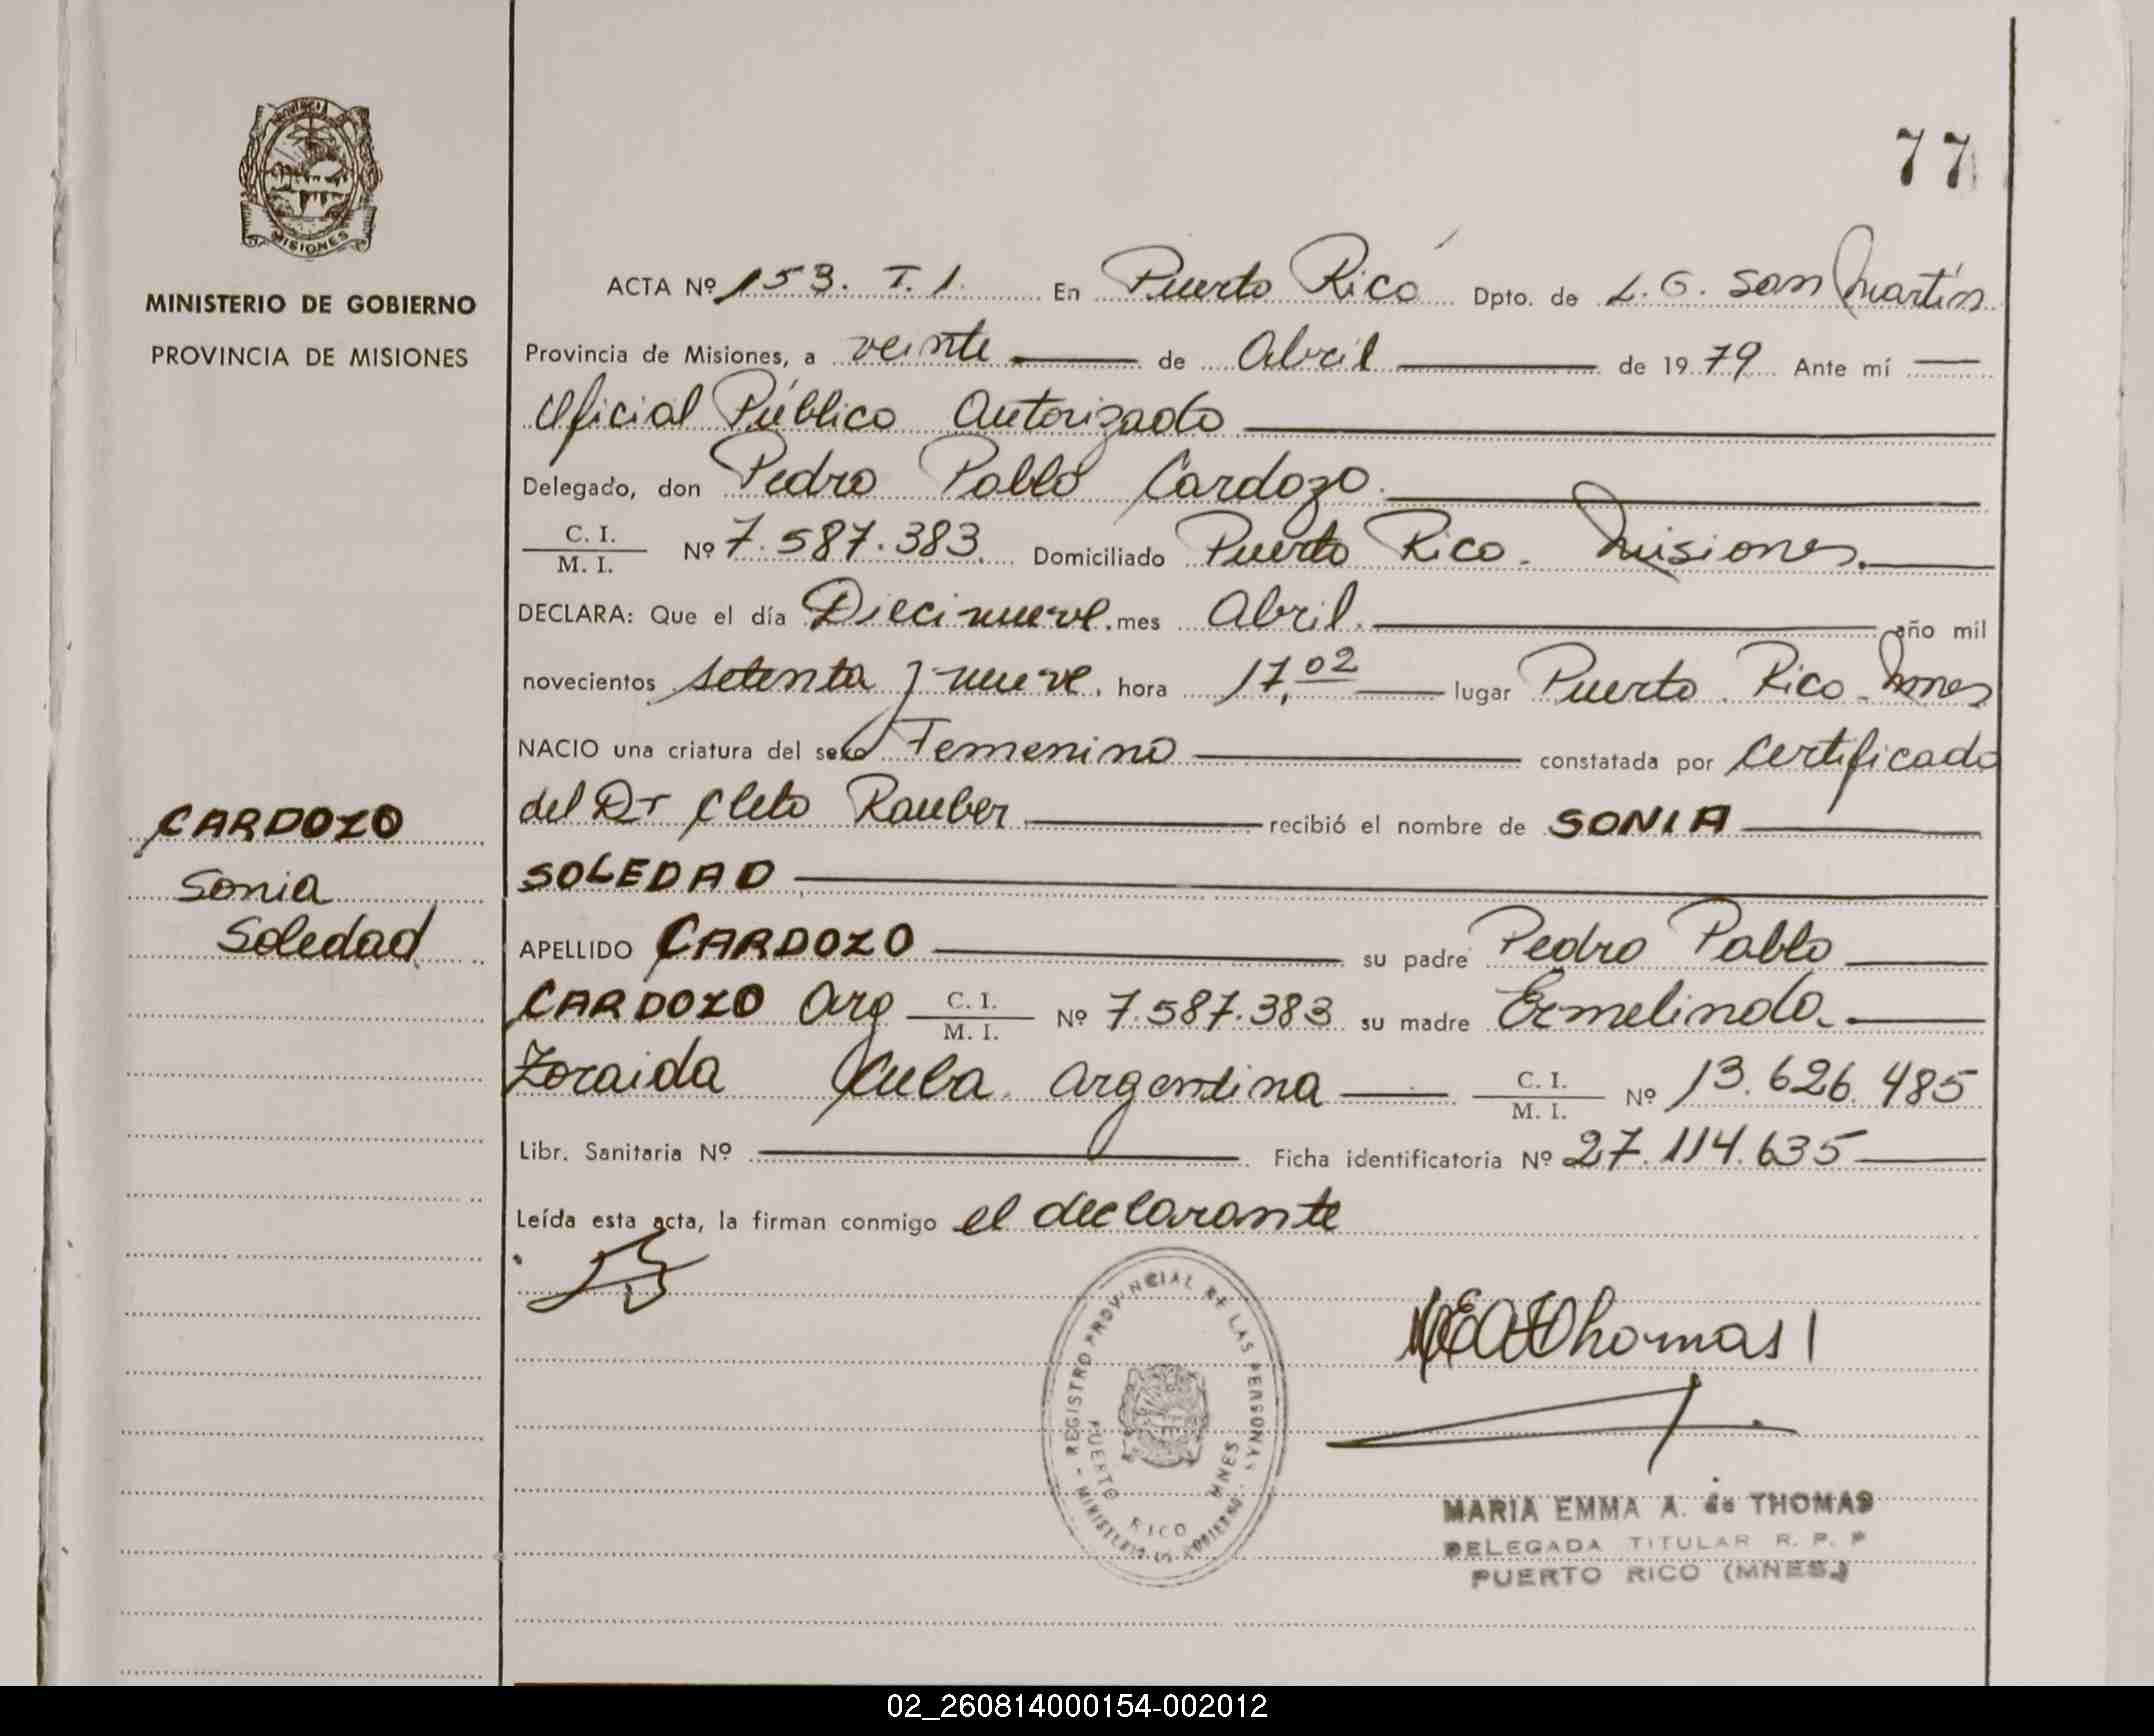 77
MINISTERIO DE GOBIERNO
PROVINCIA DE MISIONES
CARDOZO
Sonia
Soledad
ACTA Nº 153. T. 1. En Puerto Rico Dpto. de L. G. San Martín
Provincia de Misiones, a veinte de Abril de 1979 Ante mí
Oficial Público Autorizado
Delegado, don Pedro Pablo Cardozo
C. I. / M. I. Nº 7.587.383 Domiciliado Puerto Rico. Misiones.
DECLARA: Que el día Diecinueve. mes Abril. año mil
novecientos setenta y nueve. hora 17,02 lugar Puerto Rico. Mnes
NACIO una criatura del sexo Femenino constatada por certificado
del Dr Cleto Rauber recibió el nombre de SONIA
SOLEDAD
APELLIDO CARDOZO su padre Pedro Pablo
CARDOZO Arg C. I. / M. I. Nº 7.587.383 su madre Ermelinda
Zoraida Cuba Argentina C. I. / M. I. Nº 13.626.485
Libr. Sanitaria Nº Ficha identificatoria Nº 27.114.635
Leída esta acta, la firman conmigo el declarante
REGISTRO PROVINCIAL DE LAS PERSONAS - MINISTERIO DE GOBIERNO -
PUERTO RICO MNES
Thomas
MARIA EMMA A. de THOMAS
DELEGADA TITULAR R. P. P
PUERTO RICO (MNES.)
02_260814000154-002012